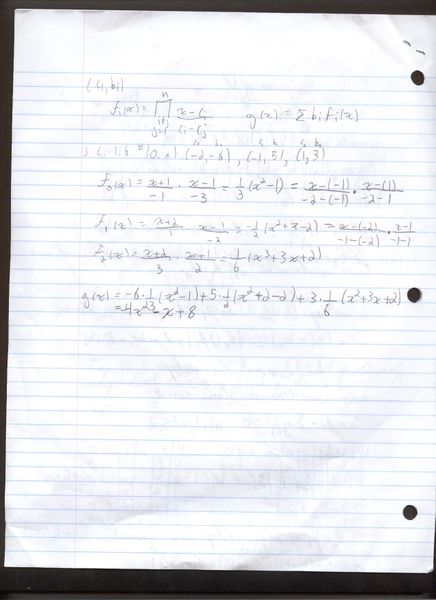 (ci, bi)
fi(x) = n ∏ i≠j j=1 x-cj / ci-cj g(x) = Σ bi fi(x)
§ 1.6 # 10.a) (-2,-6), (-1,5), (1,3)
f0(x) = x+1/-1 · x-1/-3 = 1/3 (x²-1) = x-(-1)/-2-(-1) · x-(1)/-2-1
f1(x) = x+2/1 · x-1/-2 = -1/2 (x²+x-2) = x-(-2)/-1-(-2) · x-1/-1-1
f2(x) = x+2/3 · x+1/2 = 1/6 (x²+3x+2)
g(x) = -6·1/3 (x²-1) + 5·1/2 (x²+2-2) + 3·1/6 (x²+3x+2)
= -4x² - x + 8